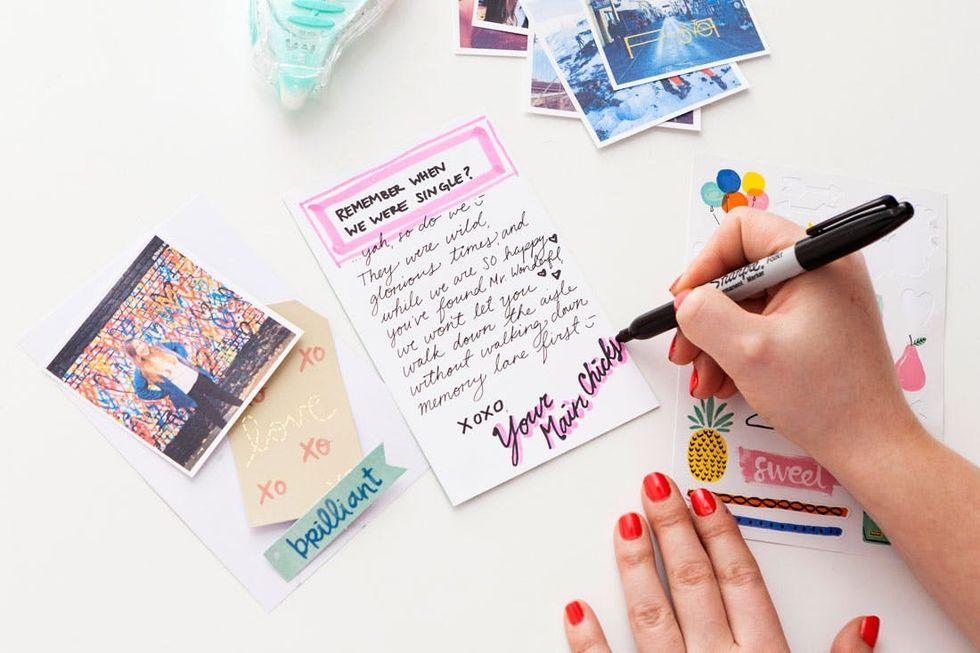 REMEMBER WHEN
WE WERE SINGLE?
...yah, so do we
They were wild,
glorious times, and
while we are SO happy
you've found Mr. Wonderful,
we won't let you
walk down the aisle
without walking down
memory lane first
XOXO
Your
Main Chicks
xo
love
xo
xo
brilliant
Sharpie
sweet